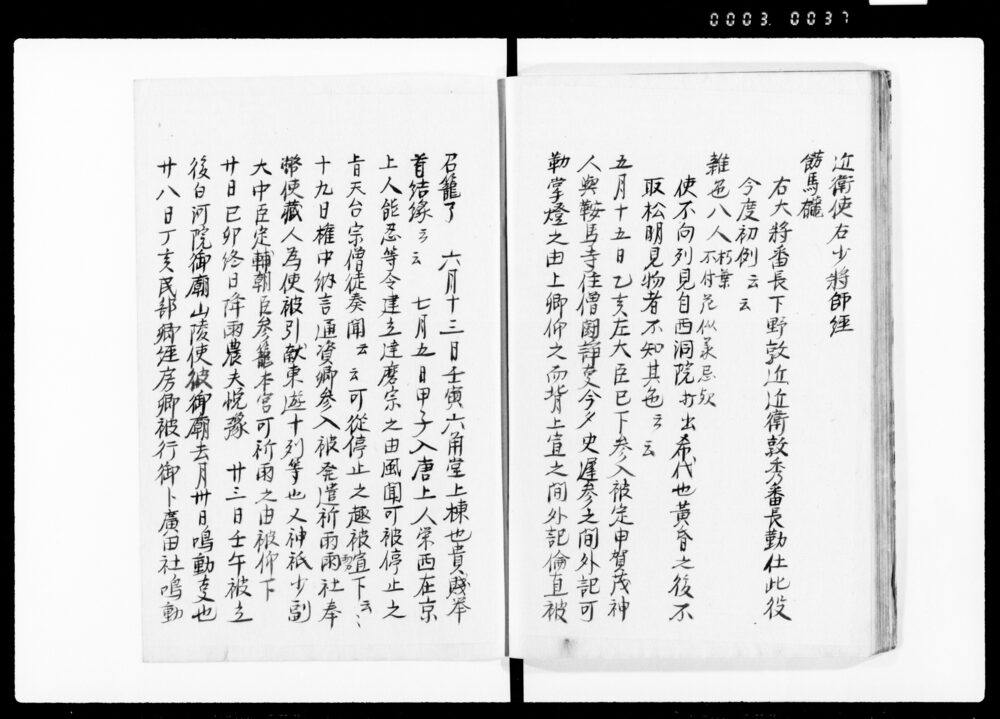 0003. 0037
近衛使右少将師経
餝馬櫳
右大将番長下野敦近近衛敦秀番長勤仕此役
今度初例云云
雑色八人朽葉不付花似羨忌歟
使不向列見自西洞院打出希代也黄昏之後不
取松明見物者不知其色云云
五月十五日乙亥左大臣已下参入被定申賀茂神
人與鞍馬寺住僧闘諍事今夕史遅参之間外記可
勤掌燈之由上卿仰之而背上宣之間外記倫直被
召籠了 六月十三日壬寅六角堂上棟也貴賤挙
首結縁云云 七月五日甲子入唐上人栄西在京
上人能忍等令建立達磨宗之由風聞可被停止之
旨天台宗僧徒奏聞云云可従停止之趣被宣下云々
十九日権中納言通資卿参入被発遣祈雨社奉
幣使蔵人為使被引献東遊十列等也又神祇少副
大中臣定輔朝臣参籠本宮可祈雨之由被仰下
廿日己卯終日降雨農夫悦豫 廿三日壬午被立
後白河院御廟山陵使彼御廟去月卅日鳴動事也
廿八日丁亥民部卿経房卿被行御卜廣田社鳴動